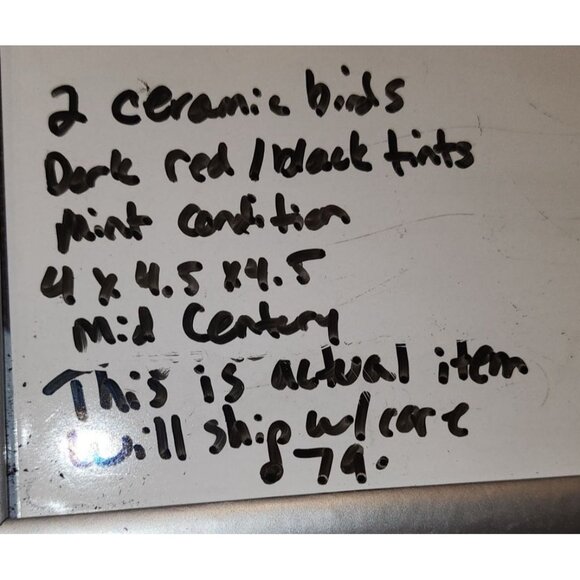 2 ceramic birds
Dark red / black tints
Mint condition
4 x 4.5 x 4.5
Mid Century
This is actual item
Will ship w/ care
79.